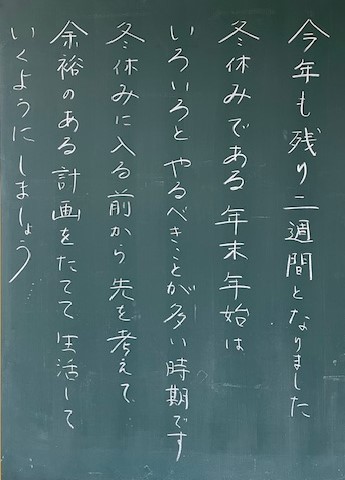 今年も残り二週間となりました
冬休みである年末年始は
いろいろとやるべきことが多い時期です
冬休みに入る前から先を考えて
余裕のある計画をたてて生活して
いくようにしましょう